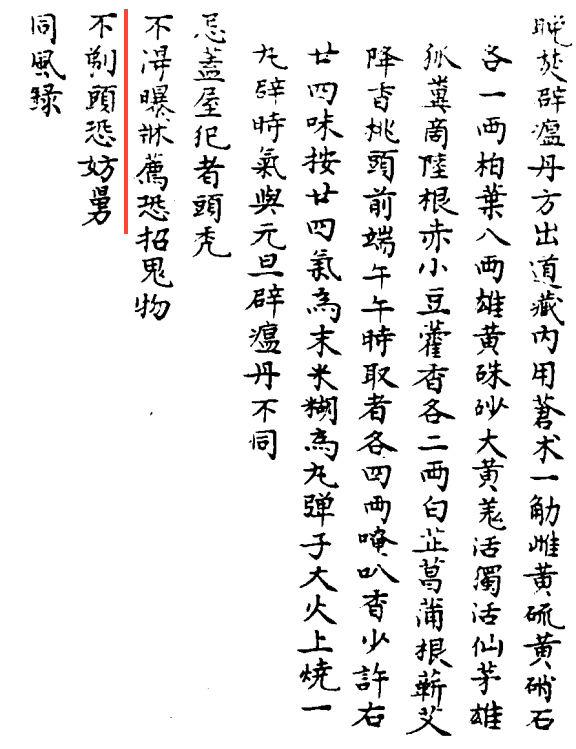 晚焚辟瘟丹方出道藏内用蒼术一觔雌黄硫黄硝石
各一两柏葉八两雄黄硃砂大黄羗活獨活仙茅雄
狐糞商陸根赤小豆藿香各二两白芷菖蒲根蘄艾
降香桃頭前端午午時取者各四两唵叭香少許右
廿四味按廿四氣為末米糊為丸弹子大火上燒一
丸辟時氣與元旦辟瘟丹不同
忌蓋屋犯者頭秃
不淂曝牀薦恐招鬼物
不剃頭恐妨舅
同風錄